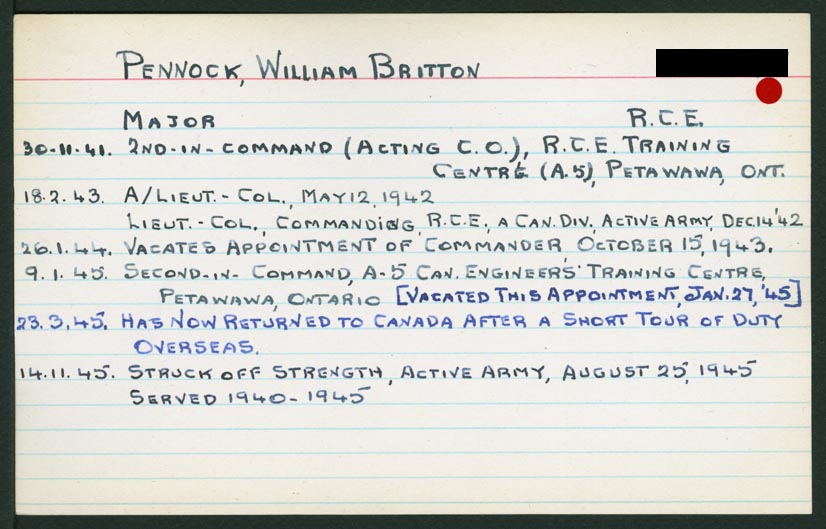 PENNOCK, WILLIAM BRITTON
MAJOR R.C.E.
30-11-41. 2ND-IN-COMMAND (ACTING C.O.), R.C.E. TRAINING
CENTRE (A.5), PETAWAWA, ONT.
18.2.43. A/LIEUT.-COL., MAY 12, 1942
LIEUT.-COL., COMMANDING, R.C.E., A CAN. DIV., ACTIVE ARMY, DEC. 14 '42
26.1.44. VACATES APPOINTMENT OF COMMANDER, OCTOBER 15, 1943.
9.1.45. SECOND-IN-COMMAND, A-5 CAN. ENGINEERS' TRAINING CENTRE,
PETAWAWA, ONTARIO [VACATED THIS APPOINTMENT, JAN. 27, '45]
23.3.45. HAS NOW RETURNED TO CANADA AFTER A SHORT TOUR OF DUTY
OVERSEAS.
14.11.45. STRUCK OFF STRENGTH, ACTIVE ARMY, AUGUST 25, 1945
SERVED 1940-1945